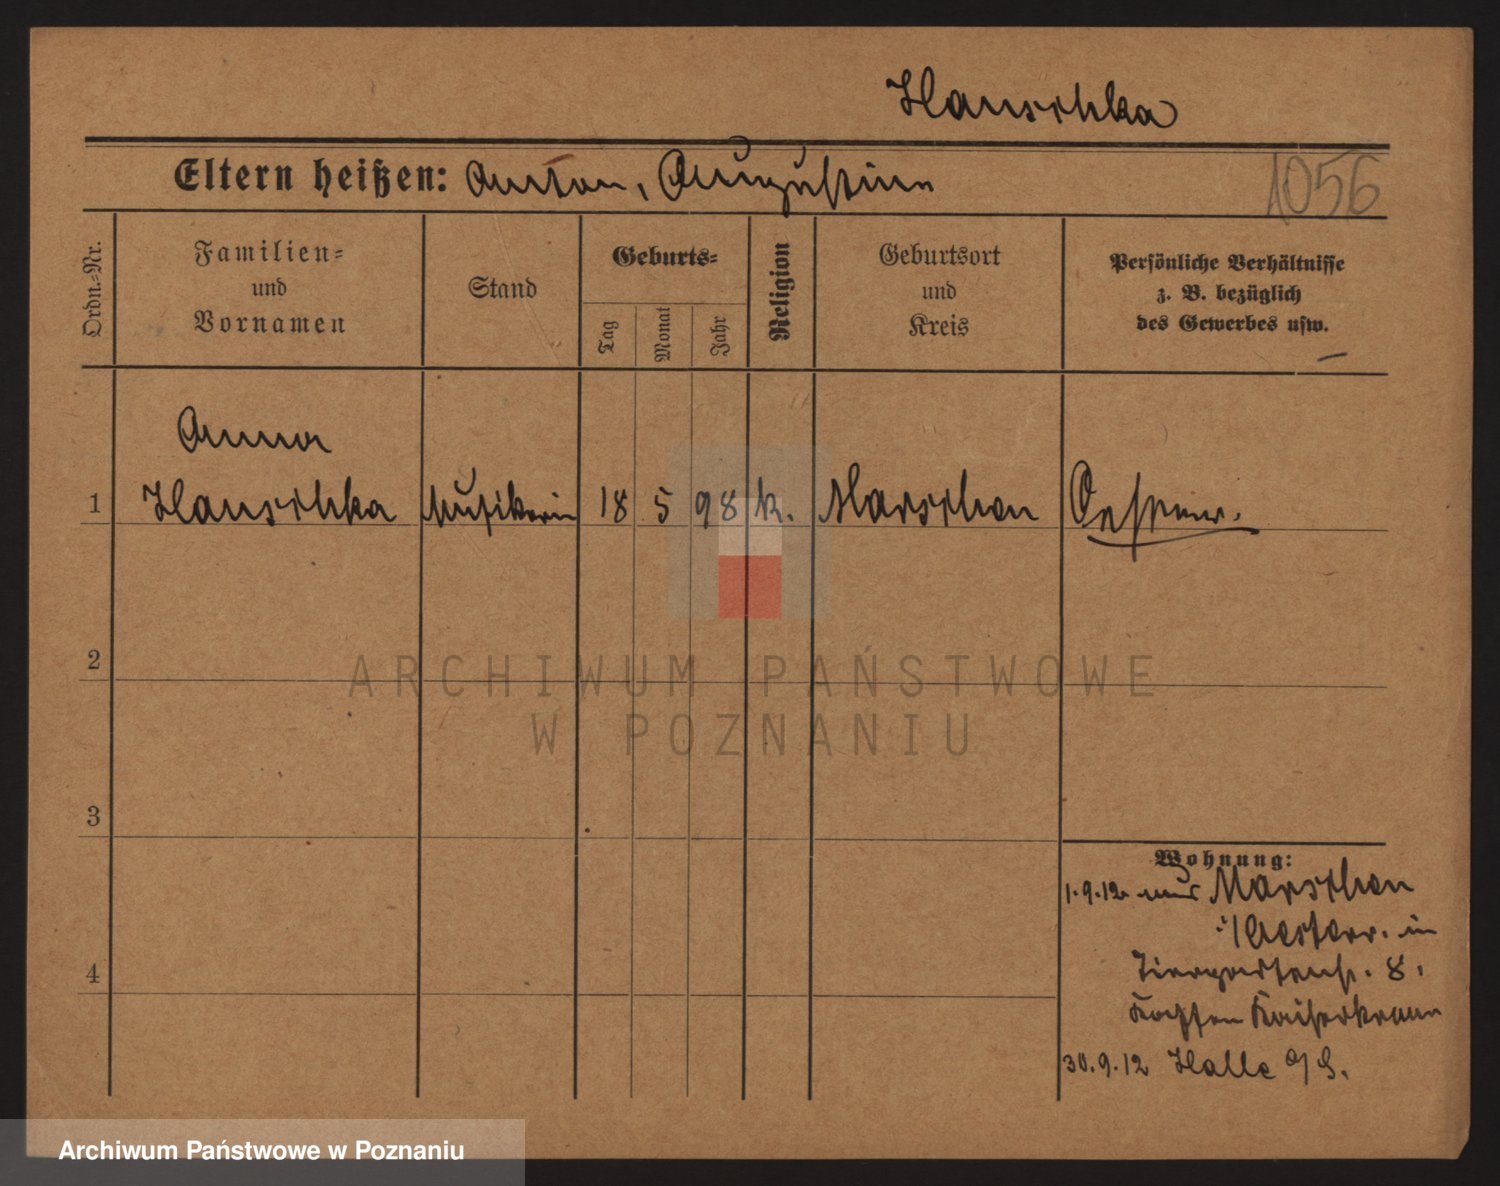 Hauschka
Eltern heißen: Anton, Augustine
1056
Ordn.-Nr.
Familien-
und
Vornamen
Stand
Geburts-
Tag
Monat
Jahr
Religion
Geburtsort
und
Kreis
Persönliche Verhältnisse
z. B. bezüglich
des Gewerbes usw.
Anna
1 Hauschka Musikerin 18 5 98 k. Marschon
2
3
4
Wohnung:
1.9.12 aus Marschon
in
Tiergartenstr. 8.
Kaiserkrone
30.9.12 Halle a/S.
ARCHIWUM PAŃSTWOWE
W POZNANIU
Archiwum Państwowe w Poznaniu